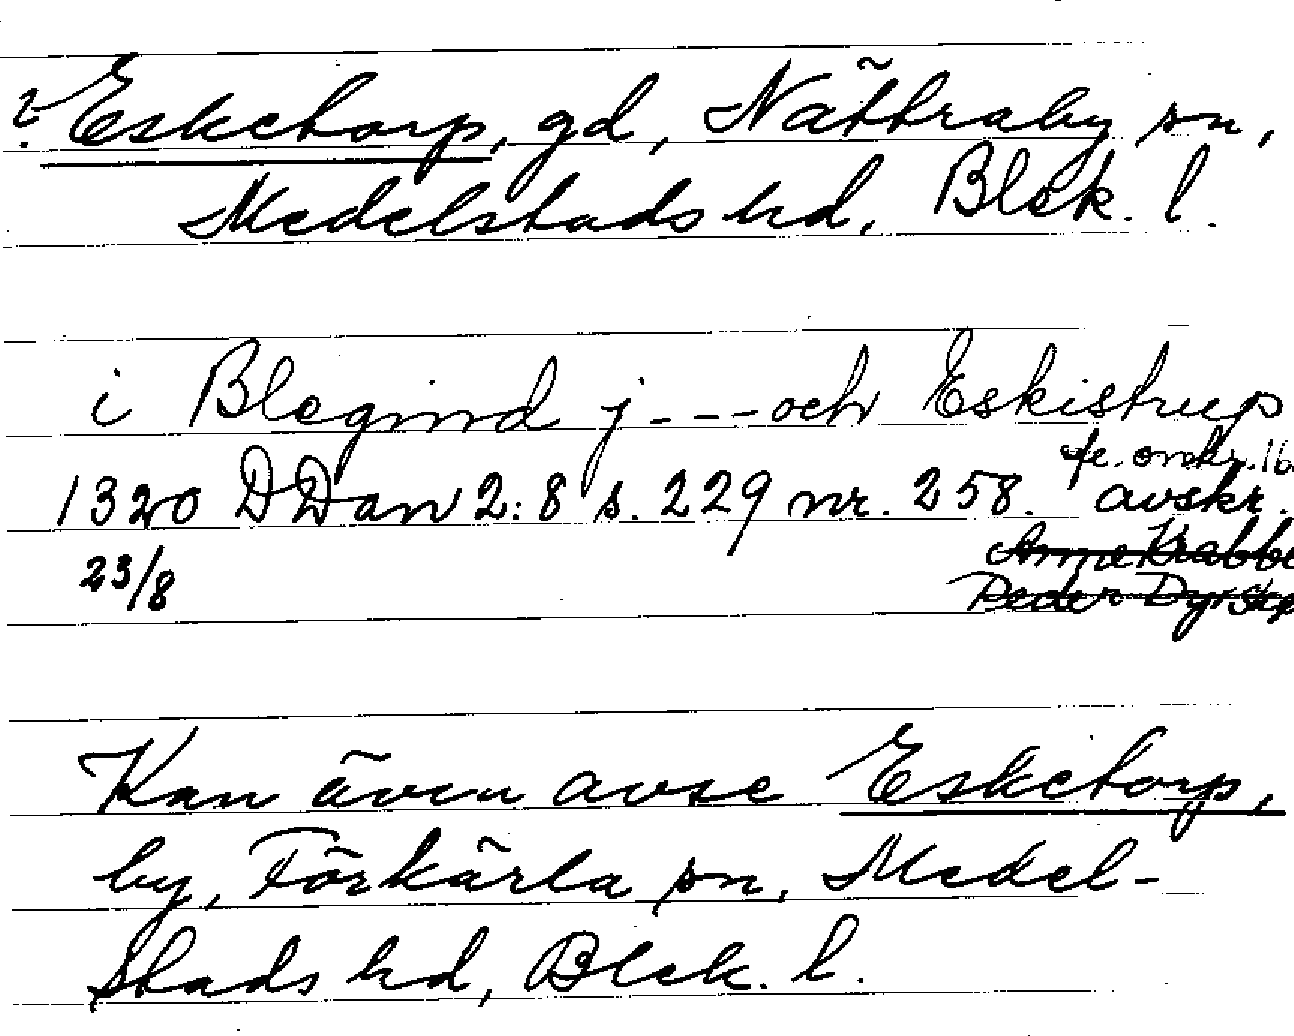 ? Esketorp, gd, Nättraby sn,
Medelstads hd, Blek. l.
i Blegind j---och Eskistrup
1320 DDan 2:8 s. 229 nr. 258. avskr.
23/8
Anne Krabbe
Peder Dyrskø
Kan även avse Esketorp,
by, Förkärla sn, Medel-
stads hd, Blek. l.